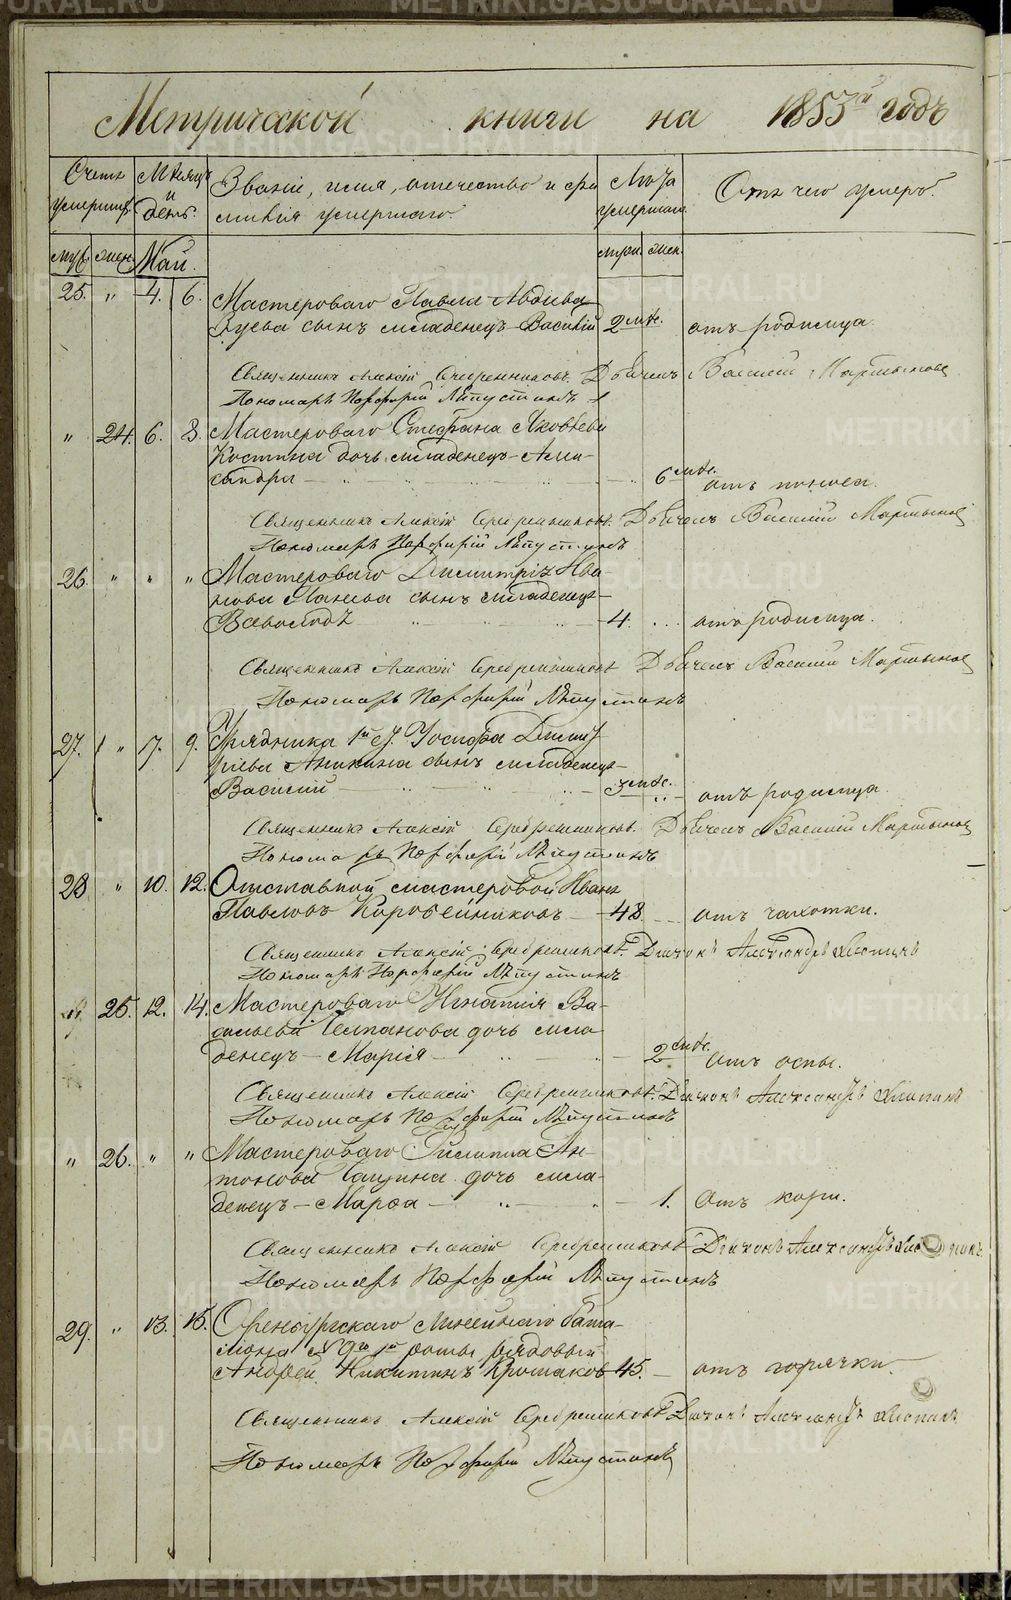 Метрической книги на 1853й годъ
Счетъ умершихъ.
Мѣсяцъ и день.
Званіе, имя, отечество и фамилія умершаго.
Лѣта умершаго.
Отъ чего умеръ.
муж. жен. Май. муж. жен.
25. " 4. 6. Мастероваго Павла
Зуева сынъ младенецъ Василій 2 мѣс. отъ родимца.
Священникъ Алексій Серебренниковъ. Дьячекъ Василій Мартыновъ
Пономарь Порфирій Лѣпустинъ
" 24. 6. 8. Мастероваго Стефана Яковлева
Костина дочь младенецъ Алек-
сандра 6 мѣс. отъ поноса.
Священникъ Алексій Серебренниковъ. Дьячекъ Василій Мартыновъ
Пономарь Порфирій Лѣпустинъ
26. " " " Мастероваго Димитрія Ива-
нова сынъ младенецъ
Всеволодъ 4. отъ родимца.
Священникъ Алексій Серебренниковъ Дьячекъ Василій Мартыновъ
Пономарь Порфирій Лѣпустинъ
27. " 7. 9. Урядника 1й ст. Іосифа Димит-
ріева Аникина сынъ младенецъ
Василій 3 мѣс. отъ родимца.
Священникъ Алексій Серебренниковъ. Дьячекъ Василій Мартыновъ
Пономарь Порфирій Лѣпустинъ
28. " 10. 12. Отставной мастеровой Иванъ
Павловъ Коробейниковъ 48. отъ чахотки.
Священникъ Алексій Серебренниковъ. Діаконъ Александръ Хлопинъ
Пономарь Порфирій Лѣпустинъ
" 25. 12. 14. Мастероваго Игнатія Ва-
сильева Челпанова дочь мла-
денецъ Марія 2 мѣс. отъ оспы.
Священникъ Алексій Серебренниковъ. Діаконъ Александръ Хлопинъ
Пономарь Порфирій Лѣпустинъ
" 26. " " Мастероваго Филиппа Ан-
тонова дочь мла-
денецъ Марѳа 1. отъ кори.
Священникъ Алексій Серебренниковъ Діаконъ Александръ Хлопинъ
Пономарь Порфирій Лѣпустинъ
29. " 13. 15. Оренбургскаго Линейнаго бата-
ліона роты рядовый
Андрей Никитинъ 45. отъ горячки.
Священникъ Алексій Серебренниковъ Діаконъ Александръ Хлопинъ
Пономарь Порфирій Лѣпустинъ
METRIKI.GASO-URAL.RU